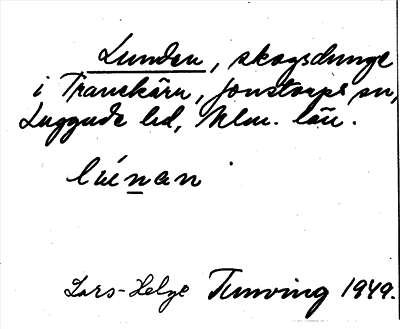 Lunden, skogsdunge
i Tranekärr, Jonstorps sn,
Luggude hd, Mlm. län.
lúnan
Lars-Helge Tunving 1949.